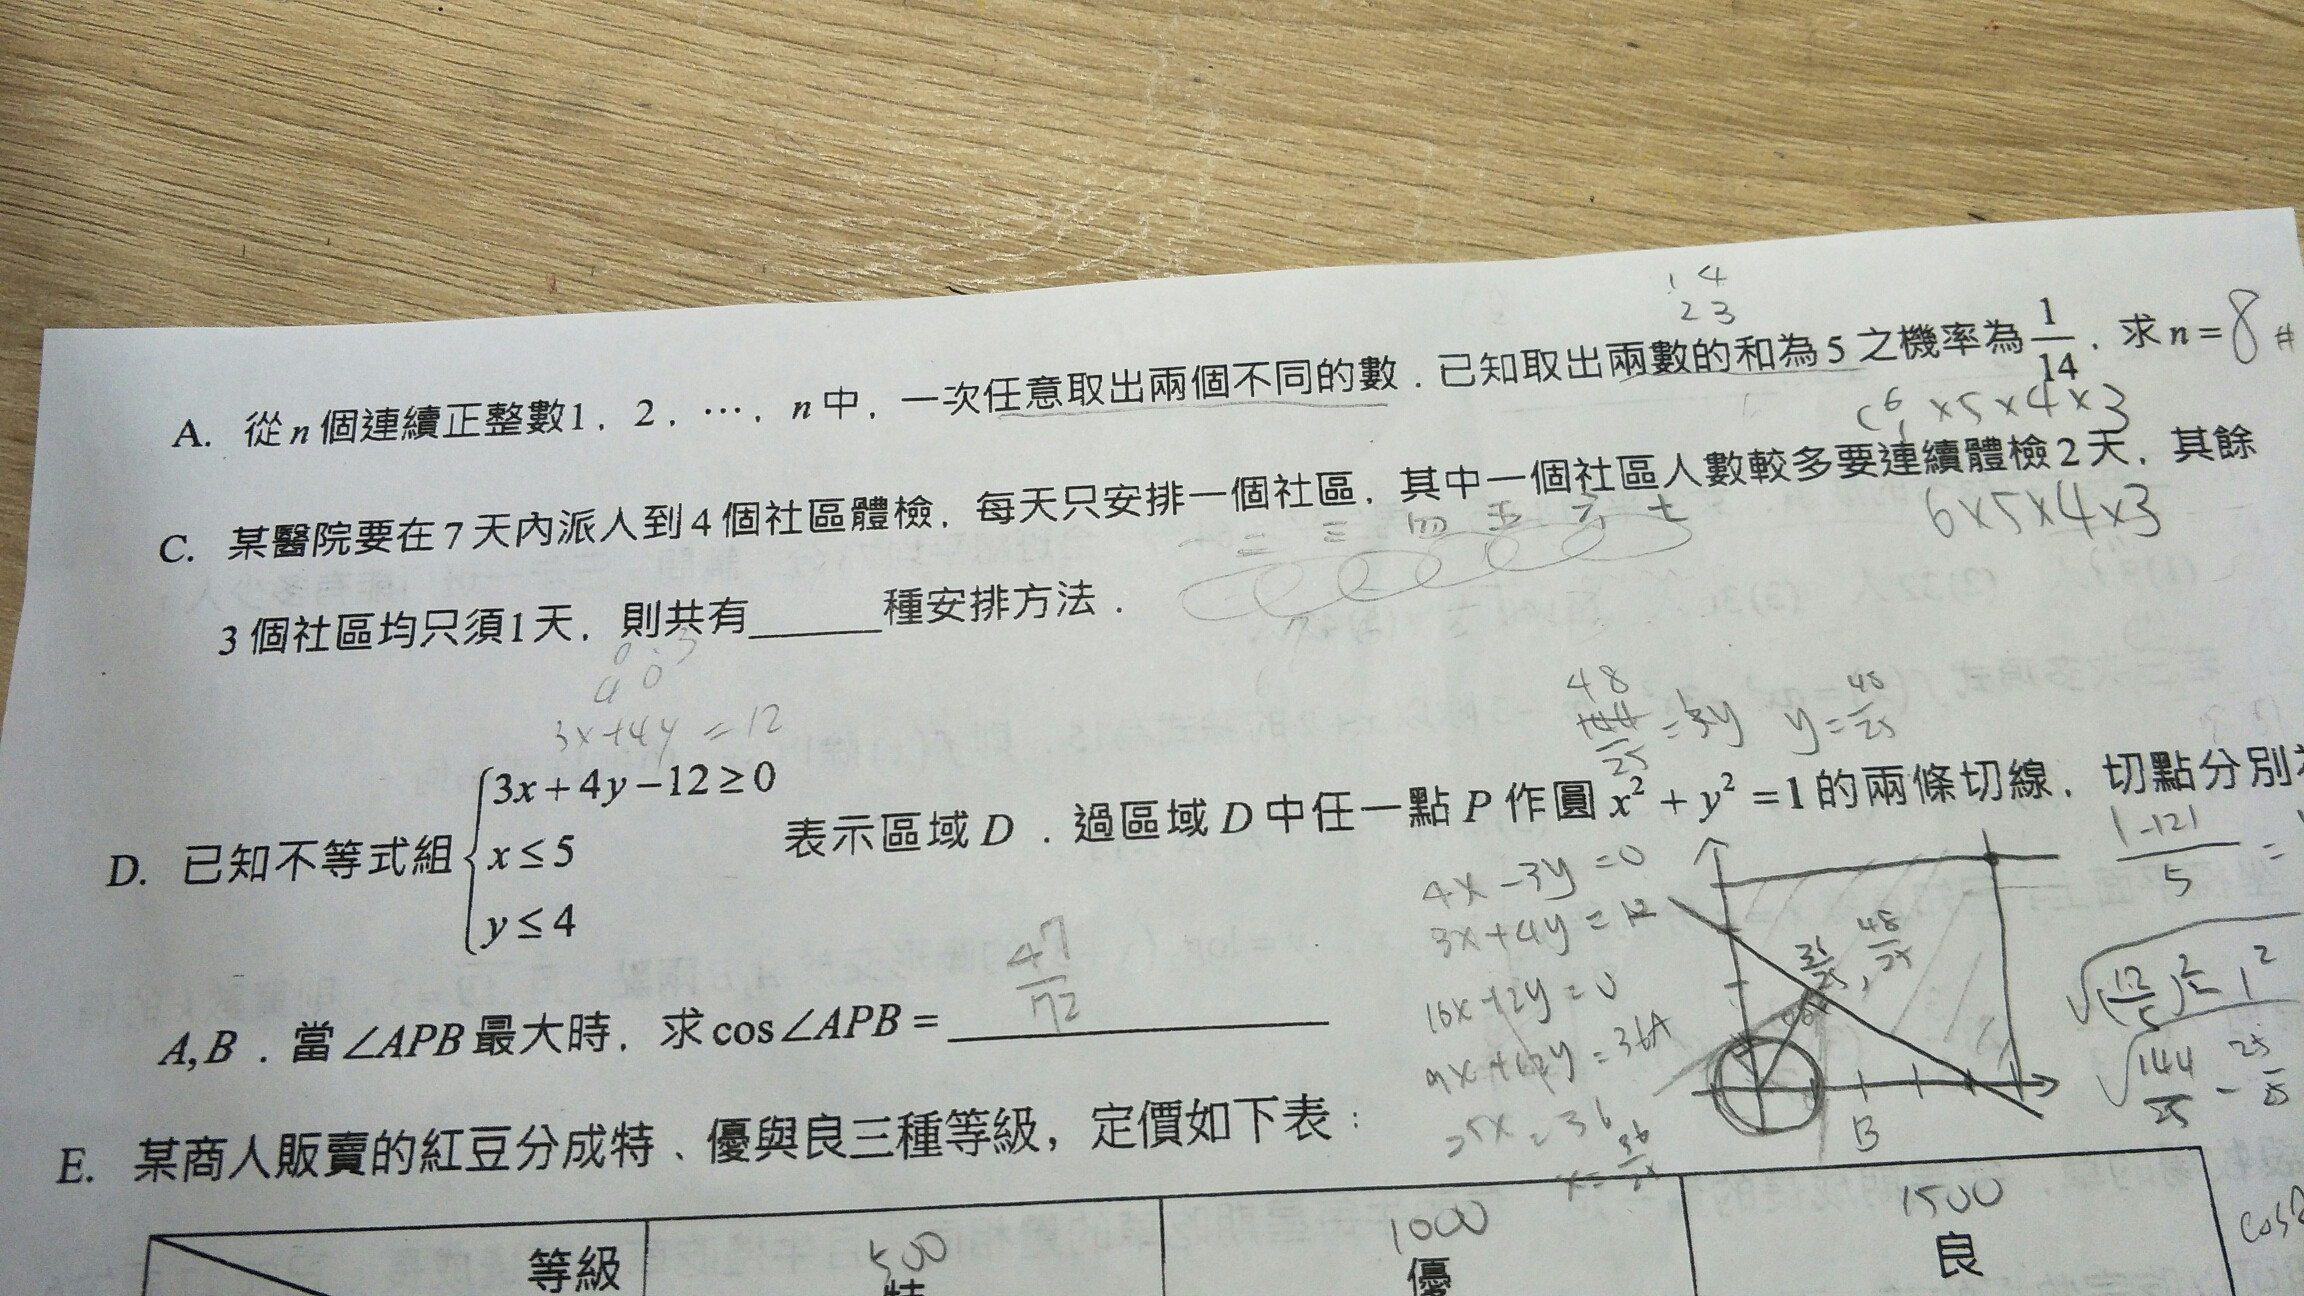 1 4
2 3
A. 從n個連續正整數1，2，…，n中，一次任意取出兩個不同的數．已知取出兩數的和為5之機率為1/14，求n= 8 #
C 6 1 ×5×4×3
C. 某醫院要在7天內派人到4個社區體檢，每天只安排一個社區，其中一個社區人數較多要連續體檢2天，其餘
一 二 三 四 五 六 七
6×5×4×3
3個社區均只須1天，則共有______種安排方法．
0 3
4 0
3x+4y=12
48
144/25 = 3y y=48/25
D. 已知不等式組 { 3x+4y−12≥0
x≤5
y≤4
表示區域D．過區域D中任一點P作圓x²+y²=1的兩條切線，切點分別
|-12|/5 =
4x-3y=0
3x+4y=12
16x-12y=0
9x+12y=36
25x=36
x=36/25
36/25, 48/25
B
√(12/5)²-1²
√144/25 - 25/25
A,B．當∠APB最大時，求cos∠APB= 47/72
E. 某商人販賣的紅豆分成特、優與良三種等級，定價如下表：
500 1000 1500
等級 特 優 良
cos